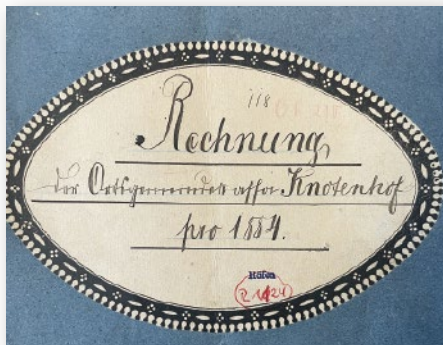 118
Rechnung
der Ortsgemeindekassa Knotenhof
pro 1884.
Höfen